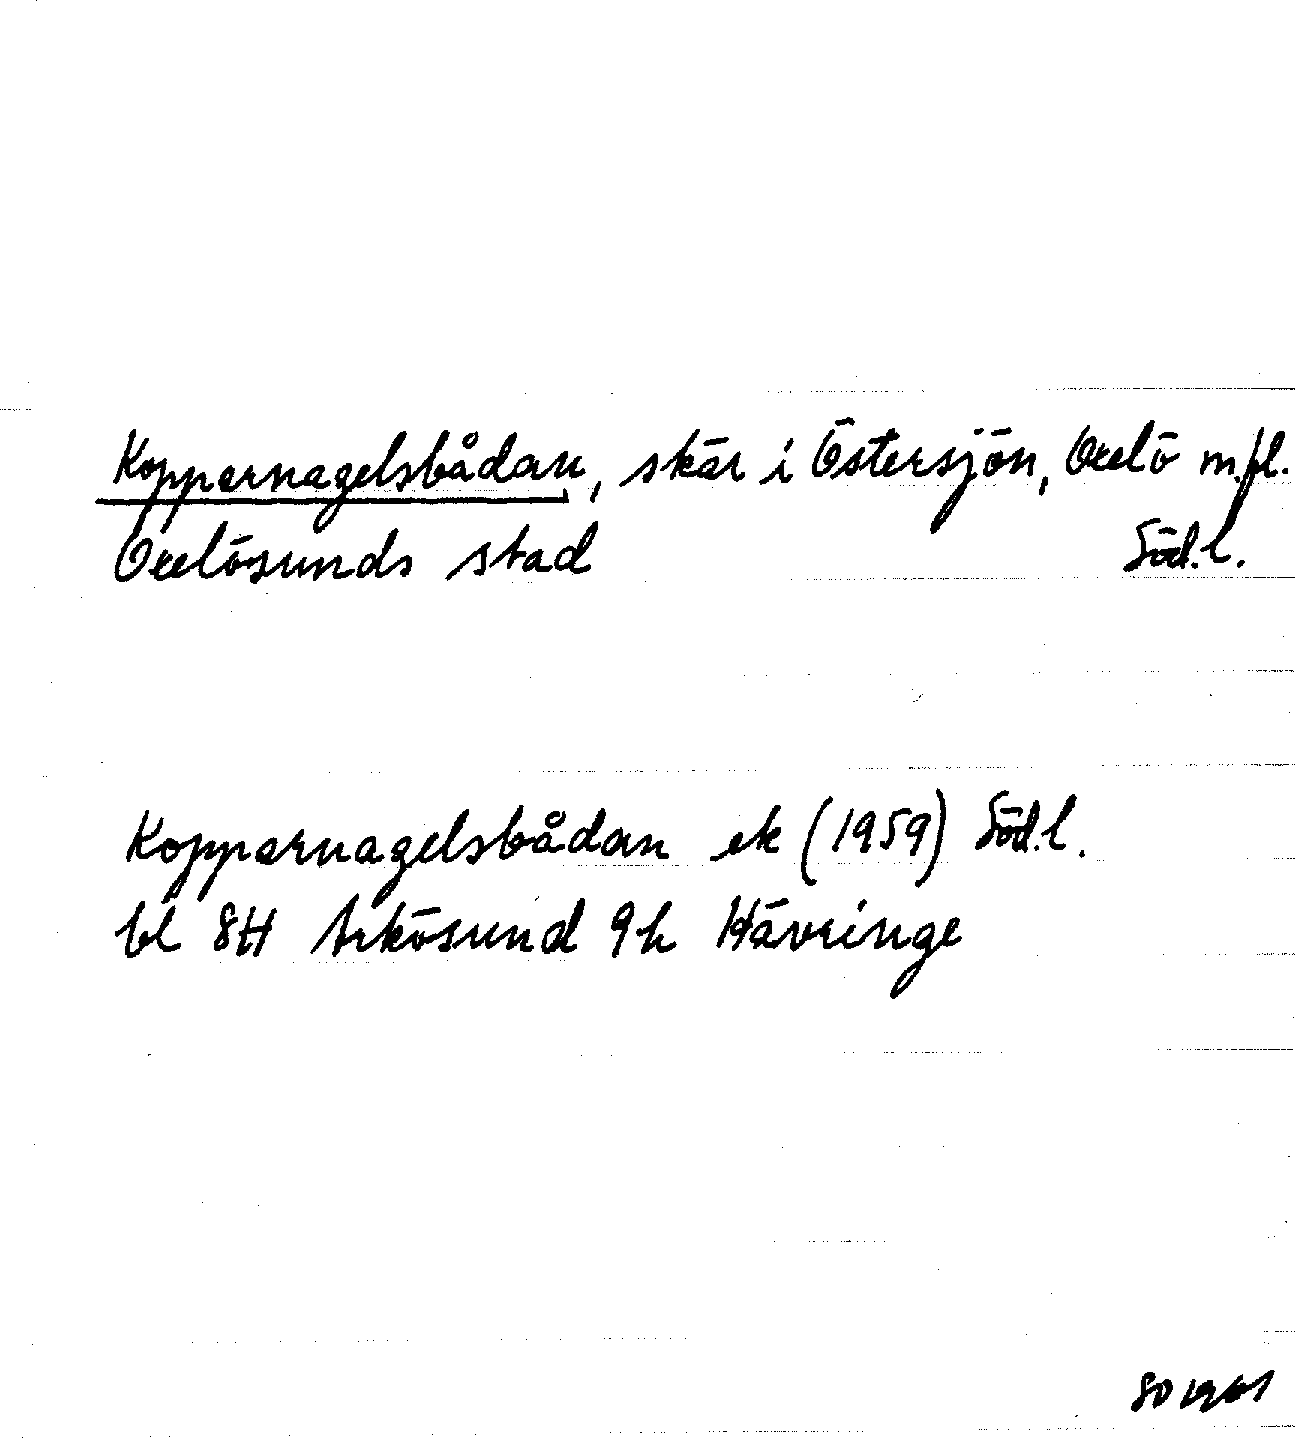 Koppernagelsbådan, skär i Östersjön, Oxelö m.fl.
Oxelösunds stad Söd.l.
Koppernagelsbådan ek (1959) Söd.l.
bl 8H Arkösund 9h Hävringe
SO 1961